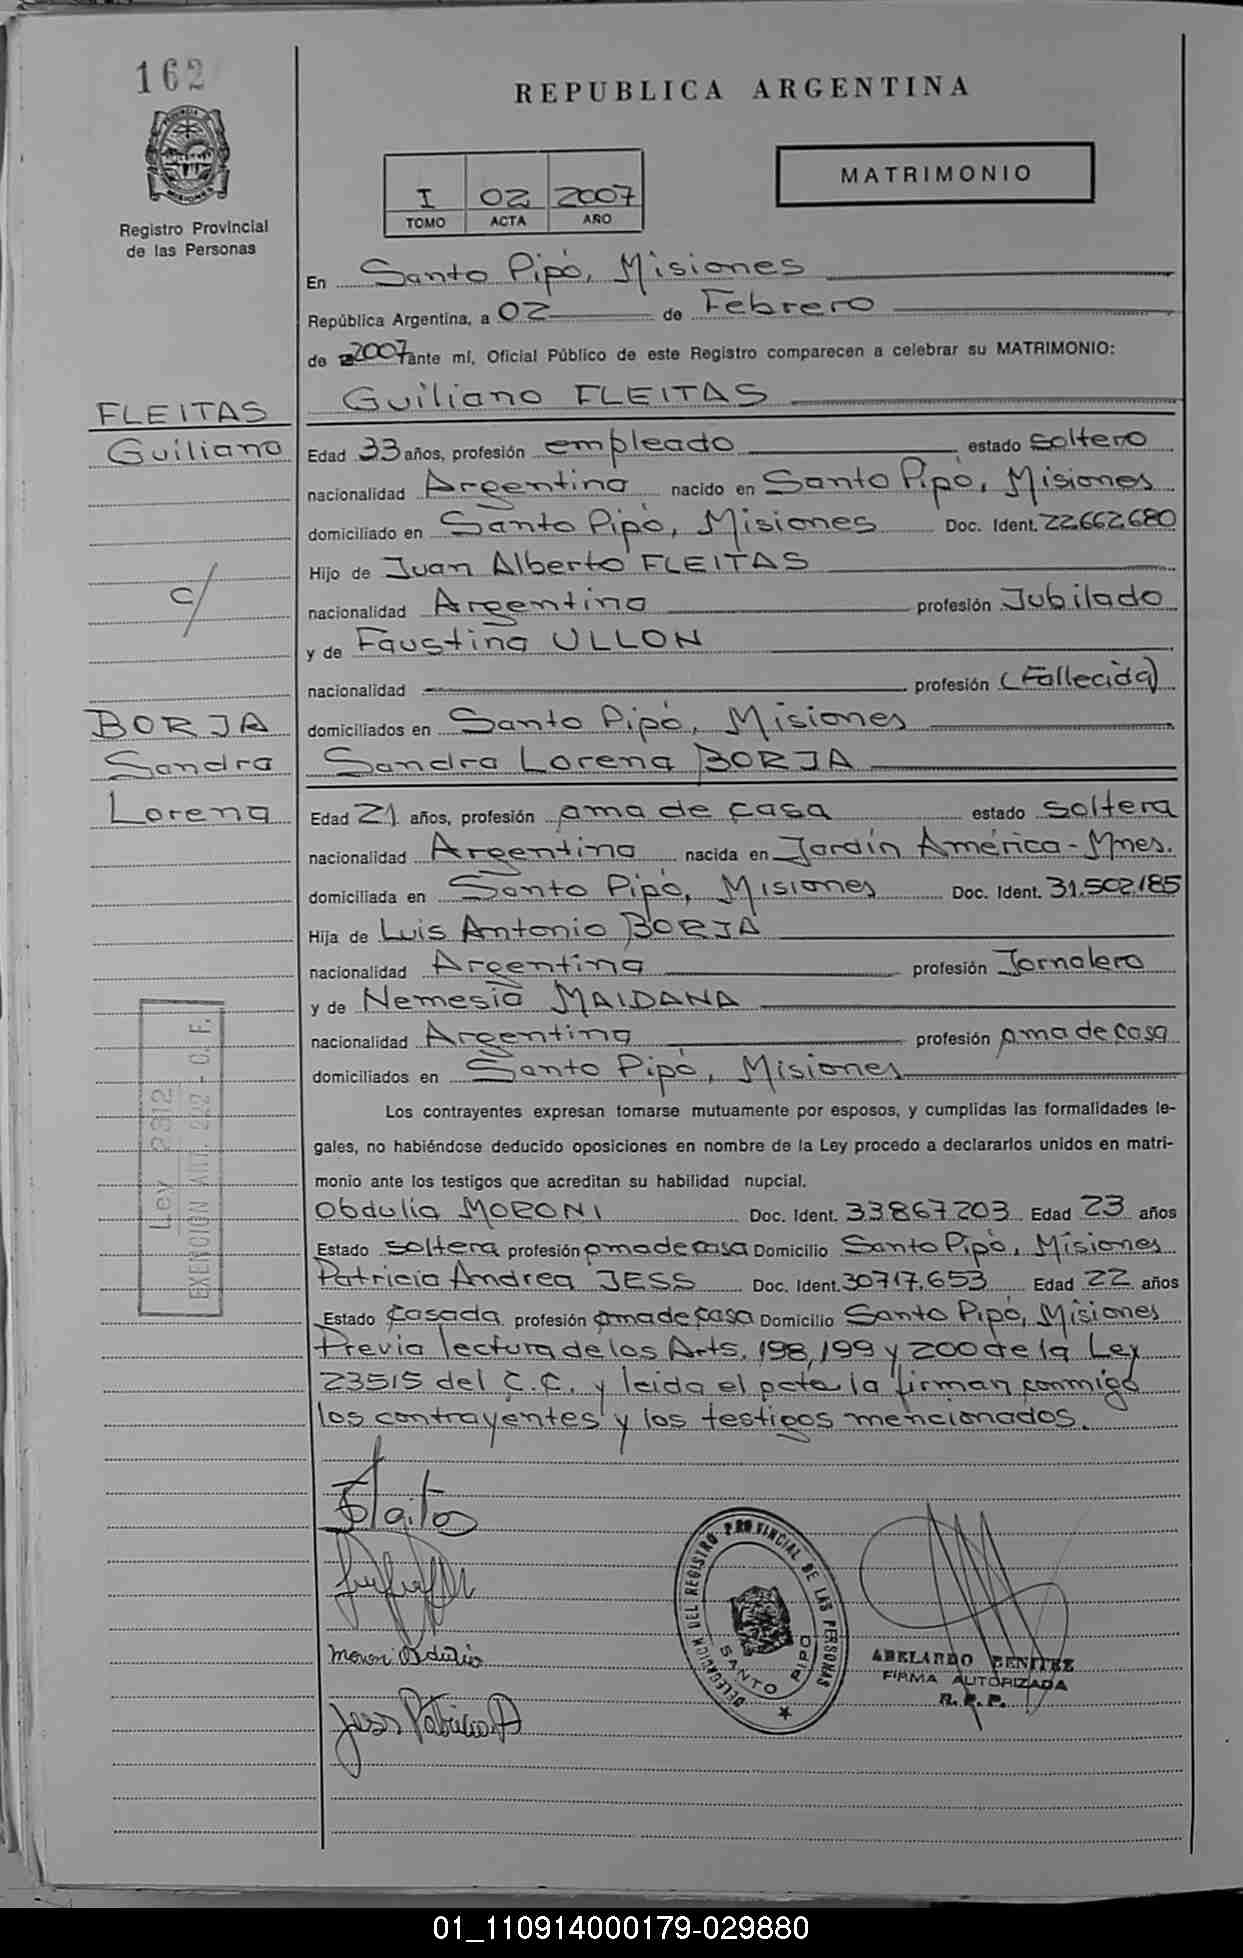 162
REPUBLICA ARGENTINA
MATRIMONIO
I 02 2007
TOMO ACTA AÑO
Registro Provincial
de las Personas
En Santo Pipó, Misiones
República Argentina, a 02 de Febrero
de 2007 ante mí, Oficial Público de este Registro comparecen a celebrar su MATRIMONIO:
FLEITAS
Guiliano
c/
BORJA
Sandra
Lorena
Guiliano FLEITAS
Edad 33 años, profesión empleado estado soltero
nacionalidad Argentina nacido en Santo Pipó, Misiones
domiciliado en Santo Pipó, Misiones Doc. Ident. 22.662.680
Hijo de Juan Alberto FLEITAS
nacionalidad Argentina profesión Jubilado
y de Faustina ULLON
nacionalidad profesión (Fallecida)
domiciliados en Santo Pipó, Misiones
Sandra Lorena BORJA
Edad 21 años, profesión ama de casa estado soltera
nacionalidad Argentina nacida en Jardín América - Mnes.
domiciliada en Santo Pipó, Misiones Doc. Ident. 31.502.185
Hija de Luis Antonio BORJA
nacionalidad Argentina profesión Jornalero
y de Nemesia MAIDANA
nacionalidad Argentina profesión ama de casa
domiciliados en Santo Pipó, Misiones
Los contrayentes expresan tomarse mutuamente por esposos, y cumplidas las formalidades le-
gales, no habiéndose deducido oposiciones en nombre de la Ley procedo a declararlos unidos en matri-
monio ante los testigos que acreditan su habilidad nupcial.
Obdulia MORONI Doc. Ident. 33.867.203 Edad 23 años
Estado soltera profesión ama de casa Domicilio Santo Pipó, Misiones
Patricia Andrea JESS Doc. Ident. 30.717.653 Edad 22 años
Estado casada profesión ama de casa Domicilio Santo Pipó, Misiones
Previa lectura de los Arts. 198, 199 y 200 de la Ley
23515 del C.C. y leida el acta la firman conmigo
los contrayentes y los testigos mencionados.
Ley 2312
EXENCION Art. 222 - C. F.
Moroni Obdulia
Jess Patricia A
DELEGACION DEL REGISTRO PROVINCIAL DE LAS PERSONAS
SANTO PIPO
ABELARDO BENITEZ
FIRMA AUTORIZADA
R. P. P.
01_110914000179-029880